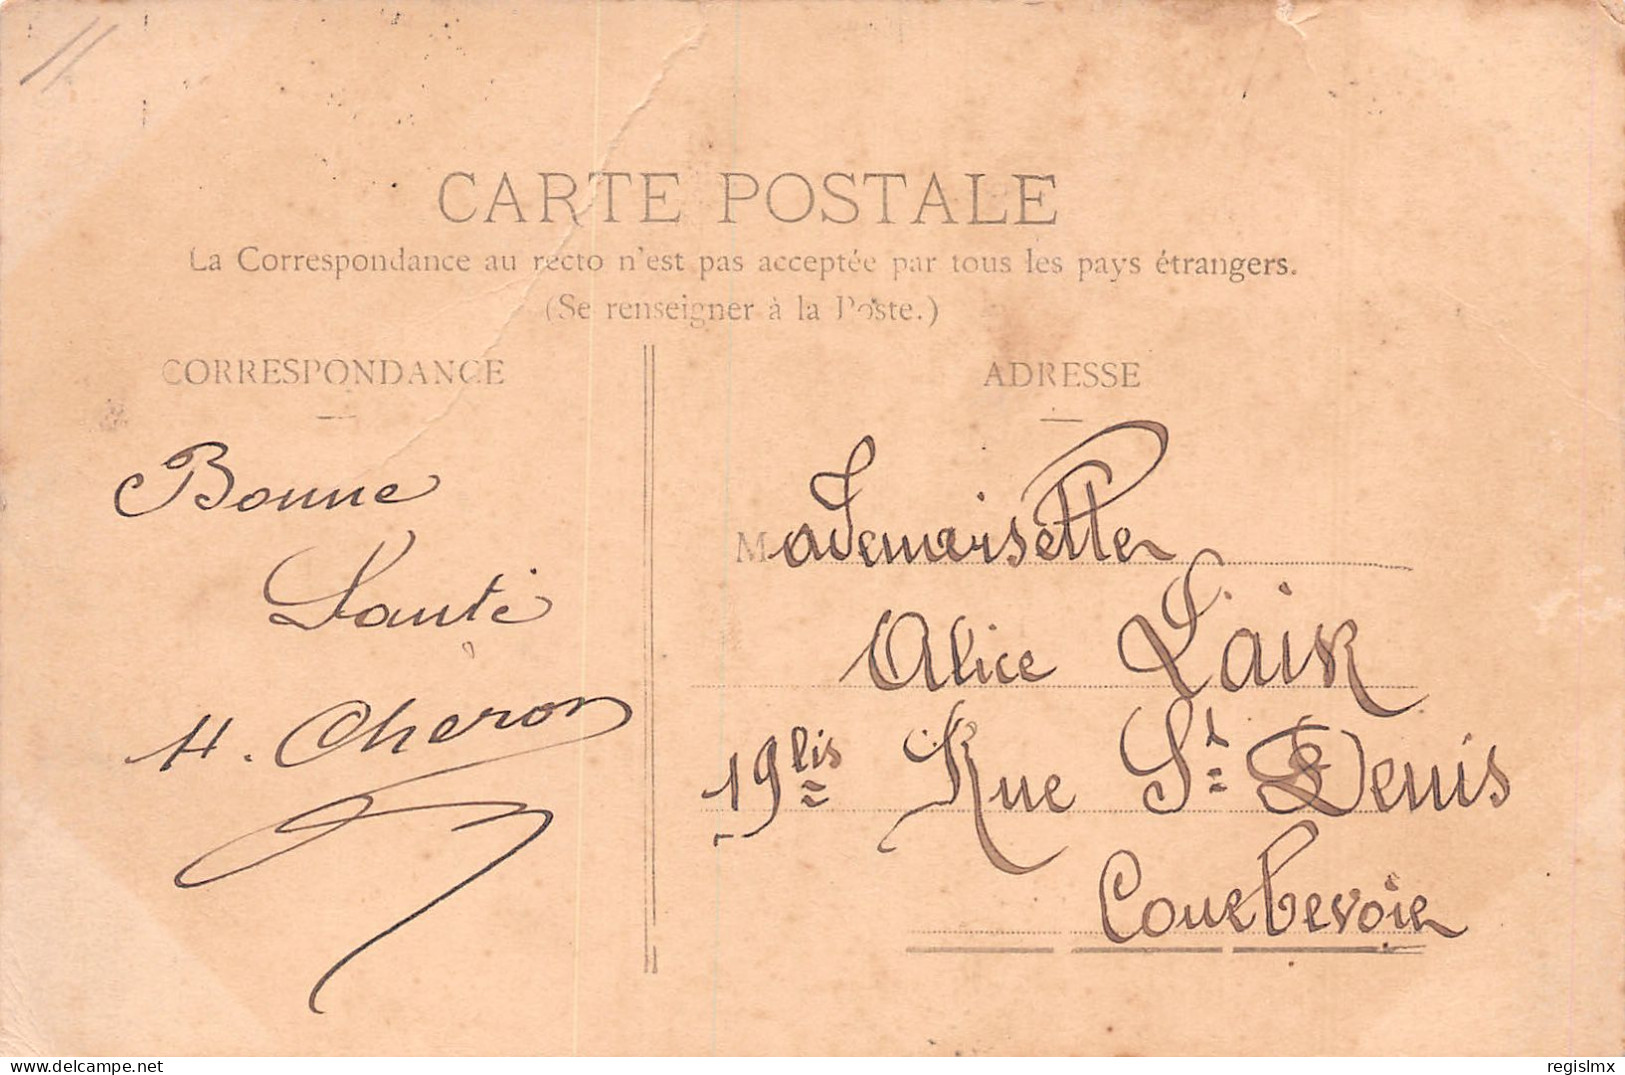 CARTE POSTALE
La Correspondance au recto n'est pas acceptée par tous les pays étrangers.
(Se renseigner à la Poste.)
CORRESPONDANCE
Bonne
Santé
H. Cheron
ADRESSE
Mademoiselle
Alice Laik
19 bis Rue St Denis
Courbevoie
delcampe.net
regislmx